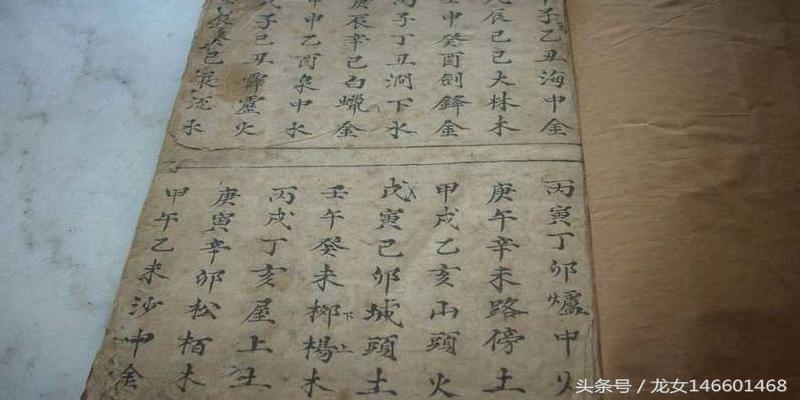 子乙丑海中金
辰己巳大林木
申癸酉釰鋒金
子丁丑澗下水
庚辰辛巳白蠟金
申乙酉泉中水
子己丑靈火
辰癸巳流水
丙寅丁卯爐中火
庚午辛未路傍土
甲戌乙亥山頭火
戊寅己卯城頭土
壬午癸未柳下楊上木
丙戌丁亥屋上土
庚寅辛卯松栢木
甲午乙未沙中金
头条号／龙女146601468